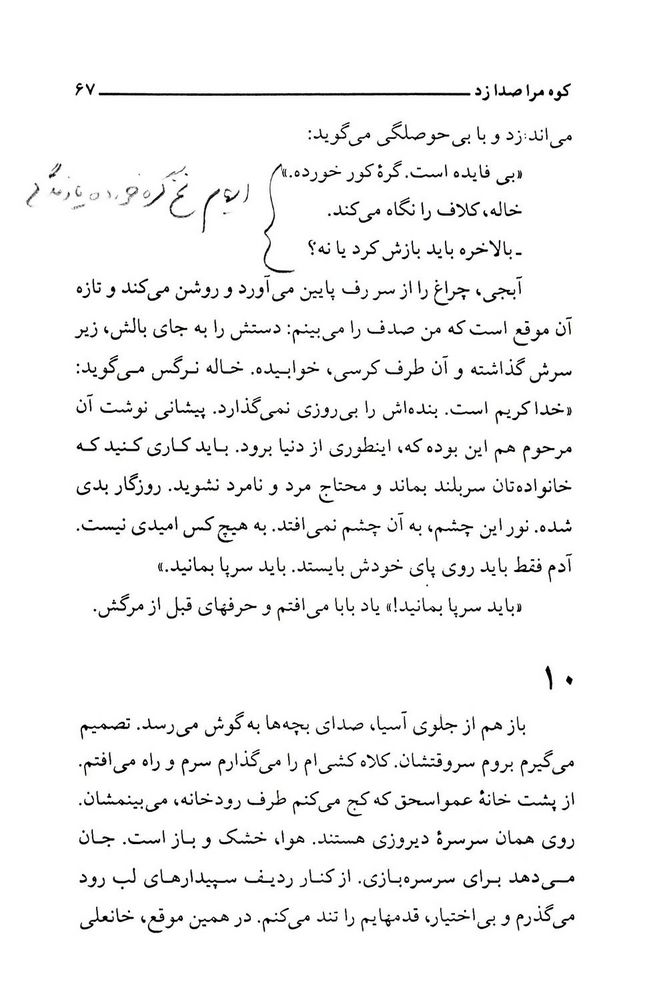 کوه مرا صدا زد ۶۷
می‌اندازد و با بی‌حوصلگی می‌گوید:
«بی فایده است. گرهٔ کور خورده.»
ایهام نخ گره خورده یا زندگی
خاله، کلاف را نگاه می‌کند.
ـ بالاخره باید بازش کرد یا نه؟
آبجی، چراغ را از سر رف پایین می‌آورد و روشن می‌کند و تازه
آن موقع است که من صدف را می‌بینم: دستش را به جای بالش، زیر
سرش گذاشته و آن طرف کرسی، خوابیده. خاله نرگس می‌گوید:
«خدا کریم است. بنده‌اش را بی‌روزی نمی‌گذارد. پیشانی نوشت آن
مرحوم هم این بوده که، اینطوری از دنیا برود. باید کاری کنید که
خانواده‌تان سربلند بماند و محتاج مرد و نامرد نشوید. روزگار بدی
شده. نور این چشم، به آن چشم نمی‌افتد. به هیچ کس امیدی نیست.
آدم فقط باید روی پای خودش بایستد. باید سرپا بمانید.»
«باید سرپا بمانید!» یاد بابا می‌افتم و حرفهای قبل از مرگش.
۱۰
باز هم از جلوی آسیا، صدای بچه‌ها به گوش می‌رسد. تصمیم
می‌گیرم بروم سروقتشان. کلاه کشی‌ام را می‌گذارم سرم و راه می‌افتم.
از پشت خانهٔ عمواسحق که کج می‌کنم طرف رودخانه، می‌بینمشان.
روی همان سرسرهٔ دیروزی هستند. هوا، خشک و باز است. جان
می‌دهد برای سرسره‌بازی. از کنار ردیف سپیدارهای لب رود
می‌گذرم و بی‌اختیار، قدمهایم را تند می‌کنم. در همین موقع، خانعلی